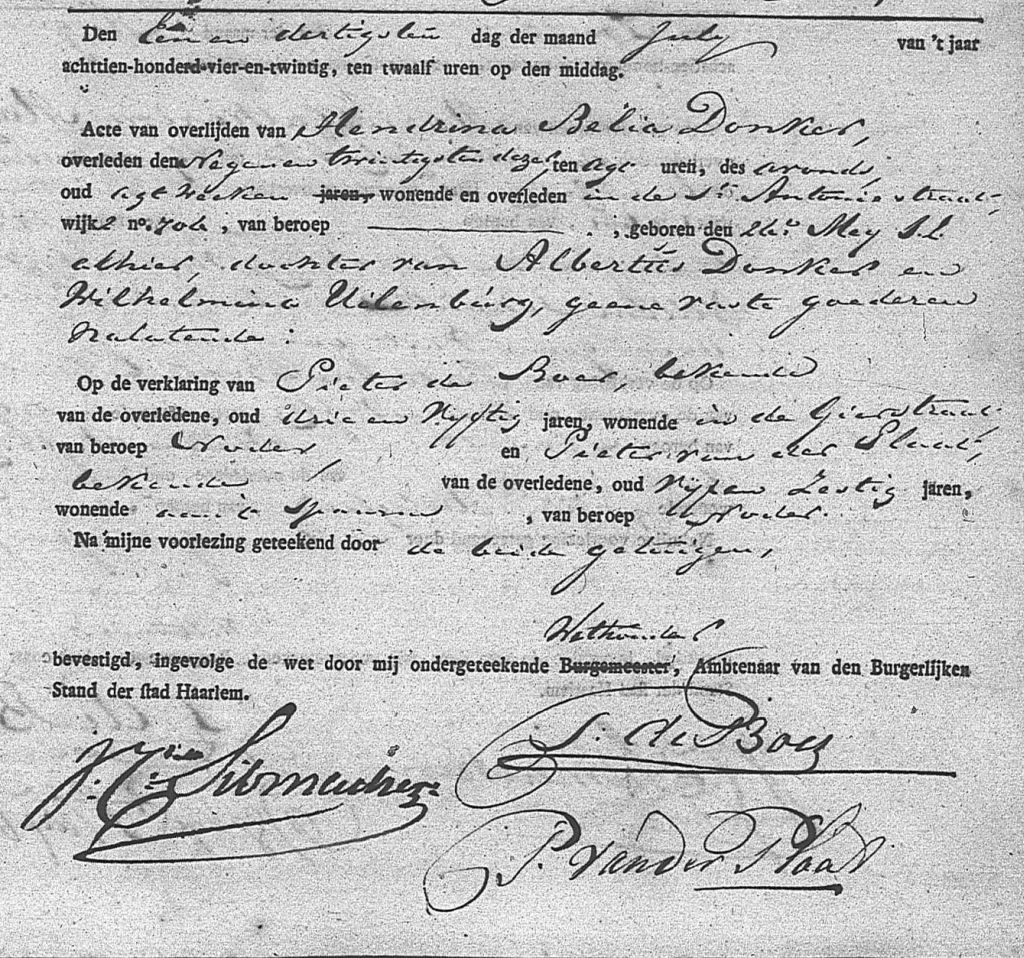 Den Een en dertigsten dag der maand July van 't jaar
achttien-honderd-vier-en-twintig, ten twaalf uren op den middag.
Acte van overlijden van Hendrina Belia Donker,
overleden den Negen en twintigsten dezer, ten agt uren, des avonds,
oud agt Weeken jaren, wonende en overleden in de St. Antoniestraat,
wijk 2 no. 706, van beroep , geboren den 26e. Mey J.L.
alhier, dochter van Albertus Donker en
Wilhelmina Uilenburg, geene vaste goederen
nalatende:
Op de verklaring van Pieter de Boer, bekende
van de overledene, oud drie en Vyftig jaren, wonende in de Gierstraat
van beroep en Pieter van der Plaat,
bekende van de overledene, oud vyf en Zestig jaren,
wonende aan 't Spaarne , van beroep
Na mijne voorlezing geteekend door de beide getuigen,
Wethouder
bevestigd, ingevolge de wet door mij ondergeteekende Burgemeester, Ambtenaar van den Burgerlijken
Stand der stad Haarlem.
de Boer
P. van der Plaat